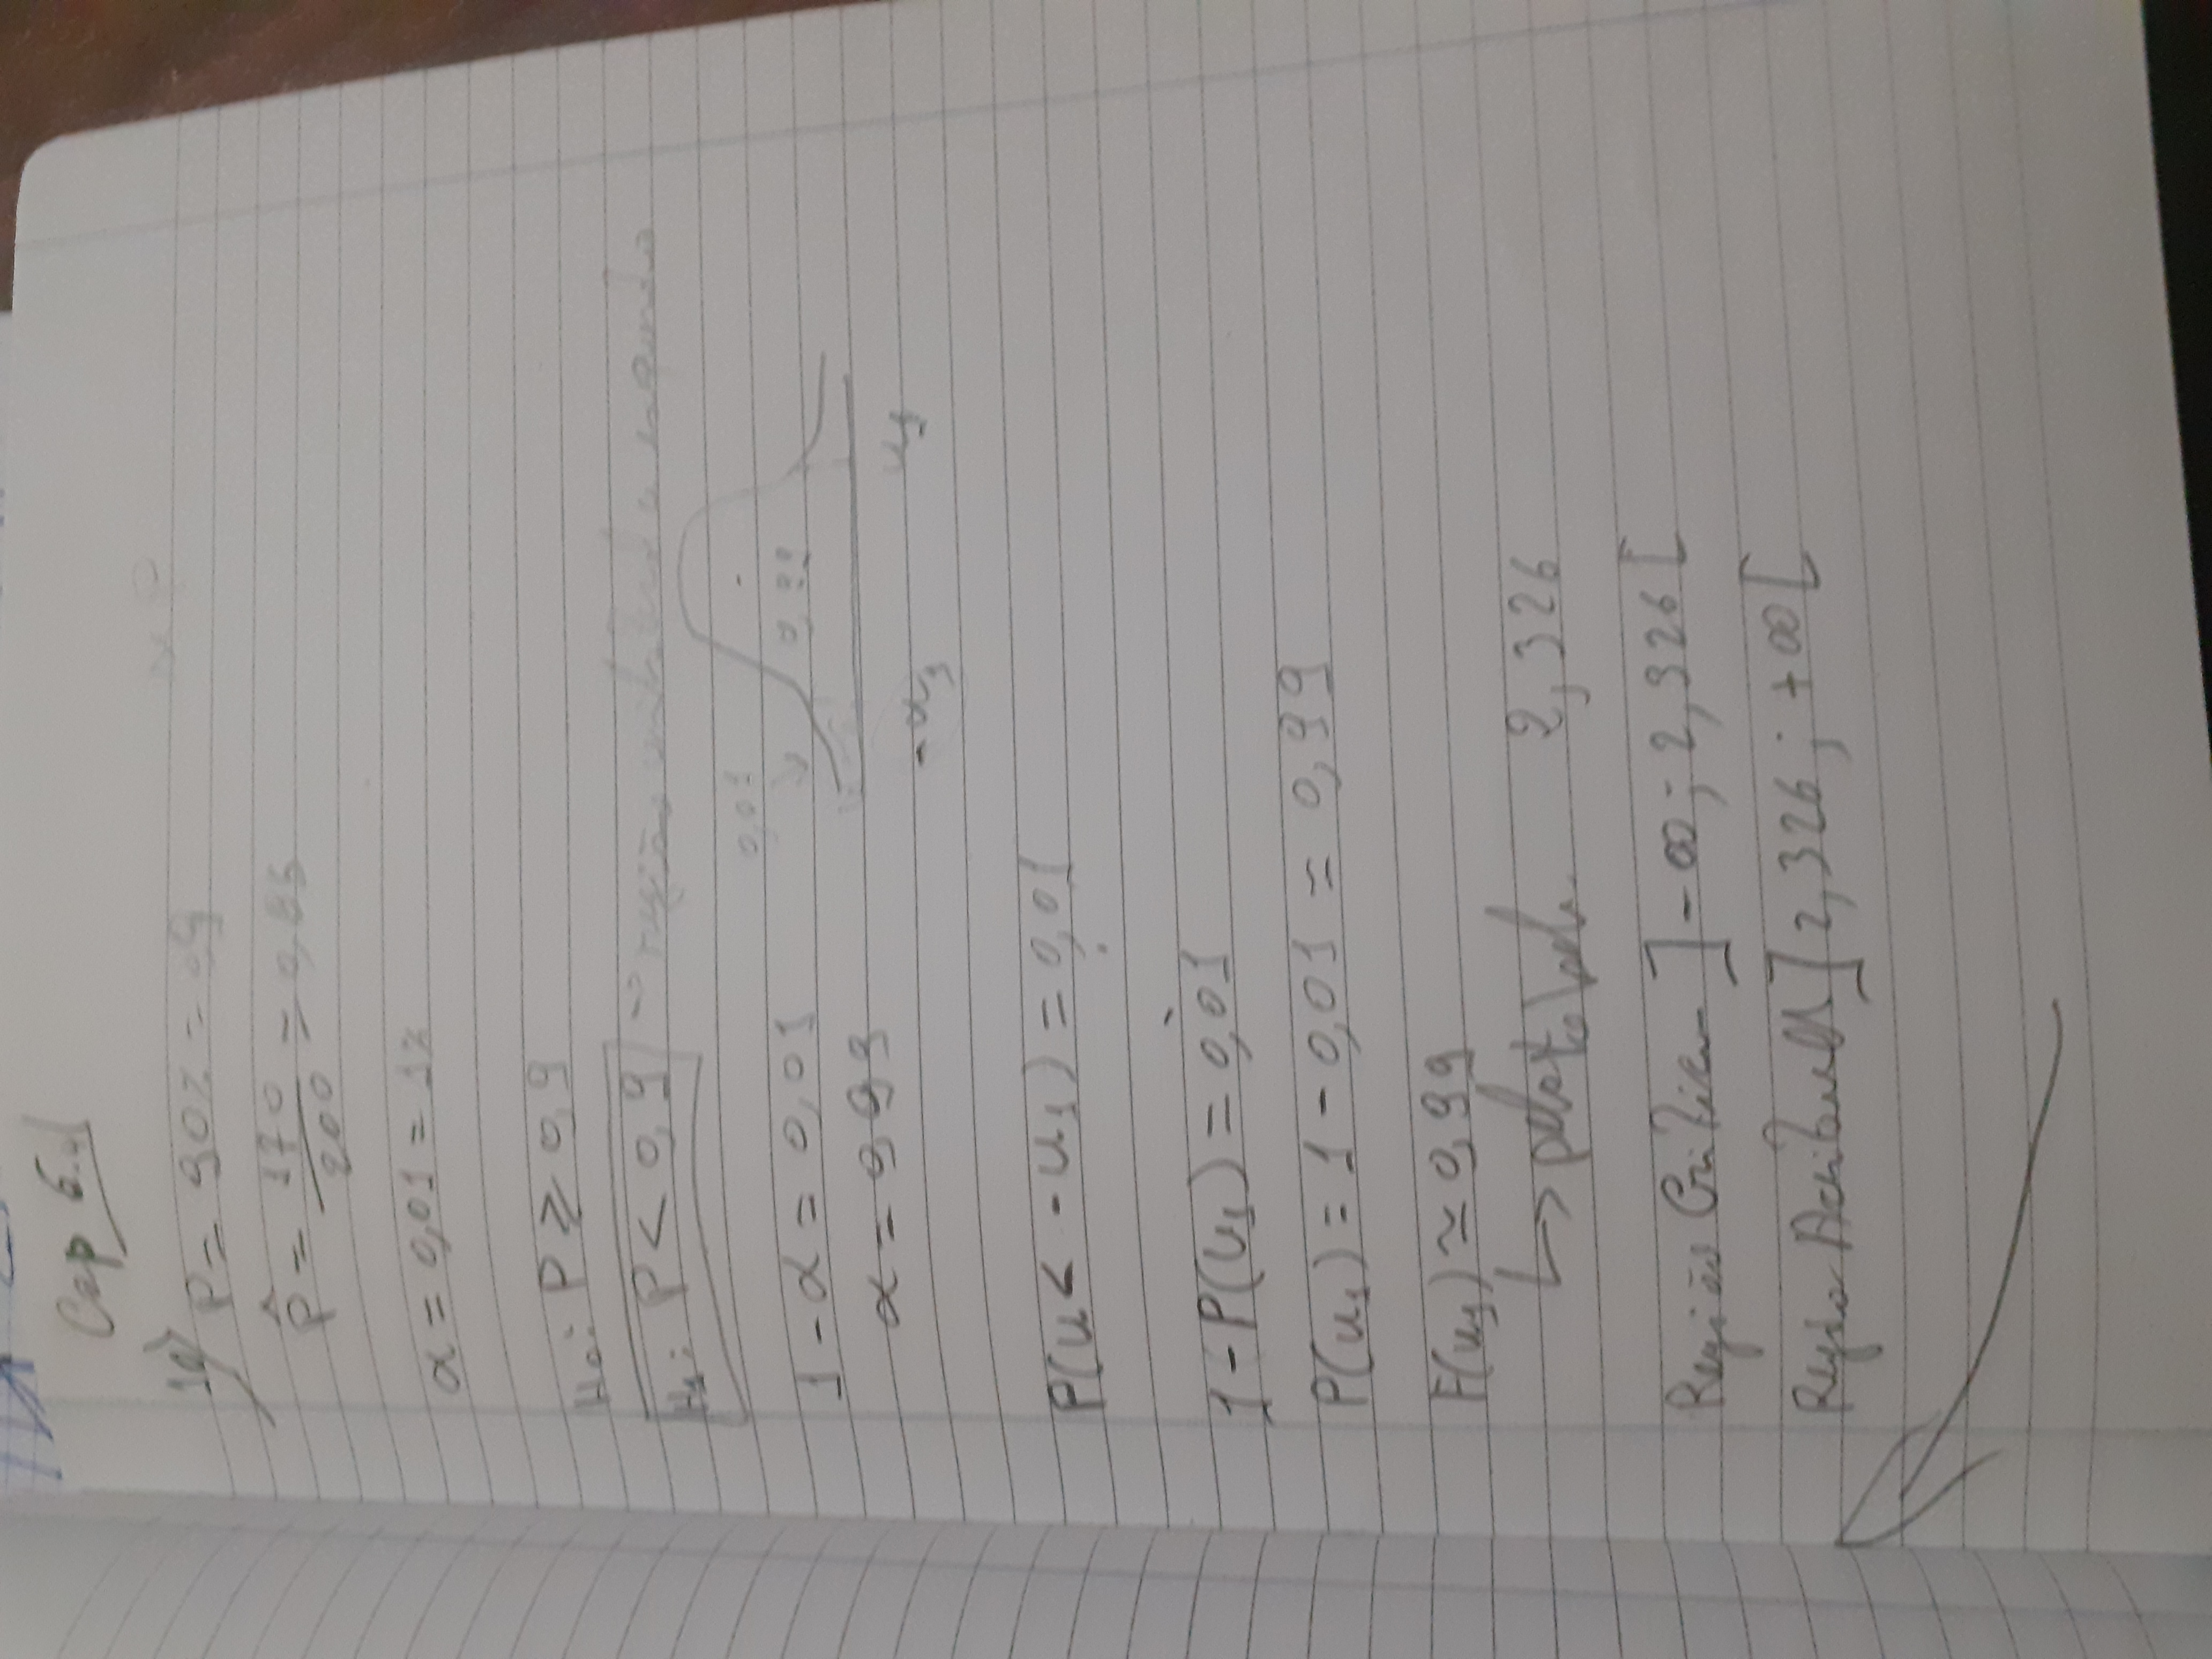 Cap 6.1
1a) P = 90% = 0,9
P̂ = 170/200 = 0,85
α = 0,01 = 1%
H₀: P ≥ 0,9
H₁: P < 0,9 → região unilateral a esquerda
1 - α = 0,01
α = 0,99
0,01
0,99
u₁
P(u < -u₁) = 0,01
1 - P(u₁) = 0,01
P(u₁) = 1 - 0,01 = 0,99
F(u₁) ≃ 0,99
↳ pela tabela 2,326
Região Critica ]-∞; 2,326[
Região ]2,326; +∞[